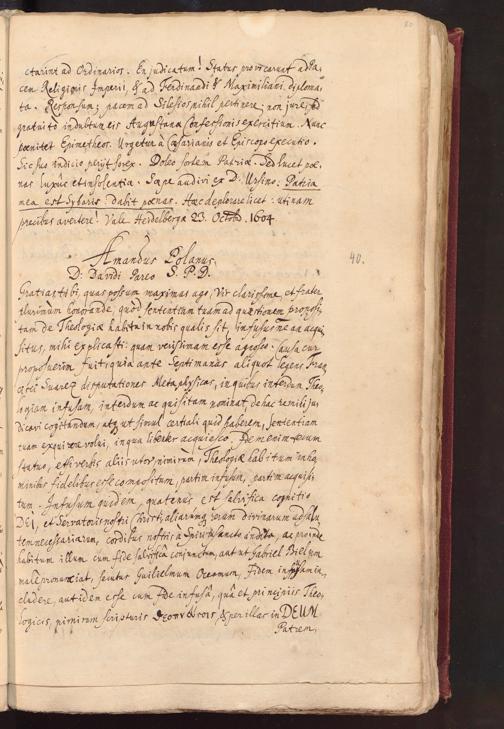 80
ctarint ad Ordinarios. En judicatum! Status provocarunt ad Pa,
cem Religionis Imperii, & ad Ferdinandi & Maximiliani diploma,
ta. Responsum; pacem ad Silesios nihil pertinere; non jure, sed
gratuito indultum eis Augustanæ Confessionis exercitium. Nunc
pœnitet Epimetheos. Urgetur à Cæsarianis et Episcopo executio.
Sic suo indicio perijt sorex. Doleo sortem Patriæ. Sed luet pœ,
nas luxus et insolentia. Sæpe audivi ex D. Ursino: Patria
mea est Sybaris dabit pœnas. Hæc deplorare licet: utinam
precibus avertere! Vale Heidelbergæ 23. Octob. 1604.
Amandus Polanus
D. Davidi Pareo S. P. D.
40.
Gratias tibi, quas possum maximas ago, Vir clarissime, et frater
plurimum honorande, quod sententiam tuam ad quæstionem proposi,
tam de Theologiæ habitu in nobis qualis sit, infususne an acqui,
situs, mihi explicasti: quam verissimam esse agnosco. Causa cur
proposuerim fuit, quia ante septimanas aliquot legens Fran,
cisci Suarez disputationes Metaphysicas, in quibus interdum Theo,
logiam infusam, interdum acquisitam nominat, de hac re mihi ju,
dicavi cogitandum, atque ut simul certi aliquid haberem, sententiam
tuam exquirere volui, in qua libenter acquiesco. De mente meum
statuo, etsi verbis aliis utor, nimirum, Theologiæ habitum in ho,
minibus fidelibus esse compositum, partim infusum, partim acquisi,
tum. Infusum quidem, quatenus est salvifica cognitio
Dei, et Servatoris nostri Christi, aliarumque rerum divinarum ad salu,
tem necessariarum, cordibus nostris à Spiritu sancto indita, ac proinde
habitum illum cum fide salvifica conjunctum, aut ut Gabriel Biel
male pronunciat, secutus Guilielmum Occamum, Fidem infusam in,
cludere, aut idem esse cum fide infusa, qua et principiis Theo,
logicis, nimirum scripturis & per illas in DEUM
Patrem,